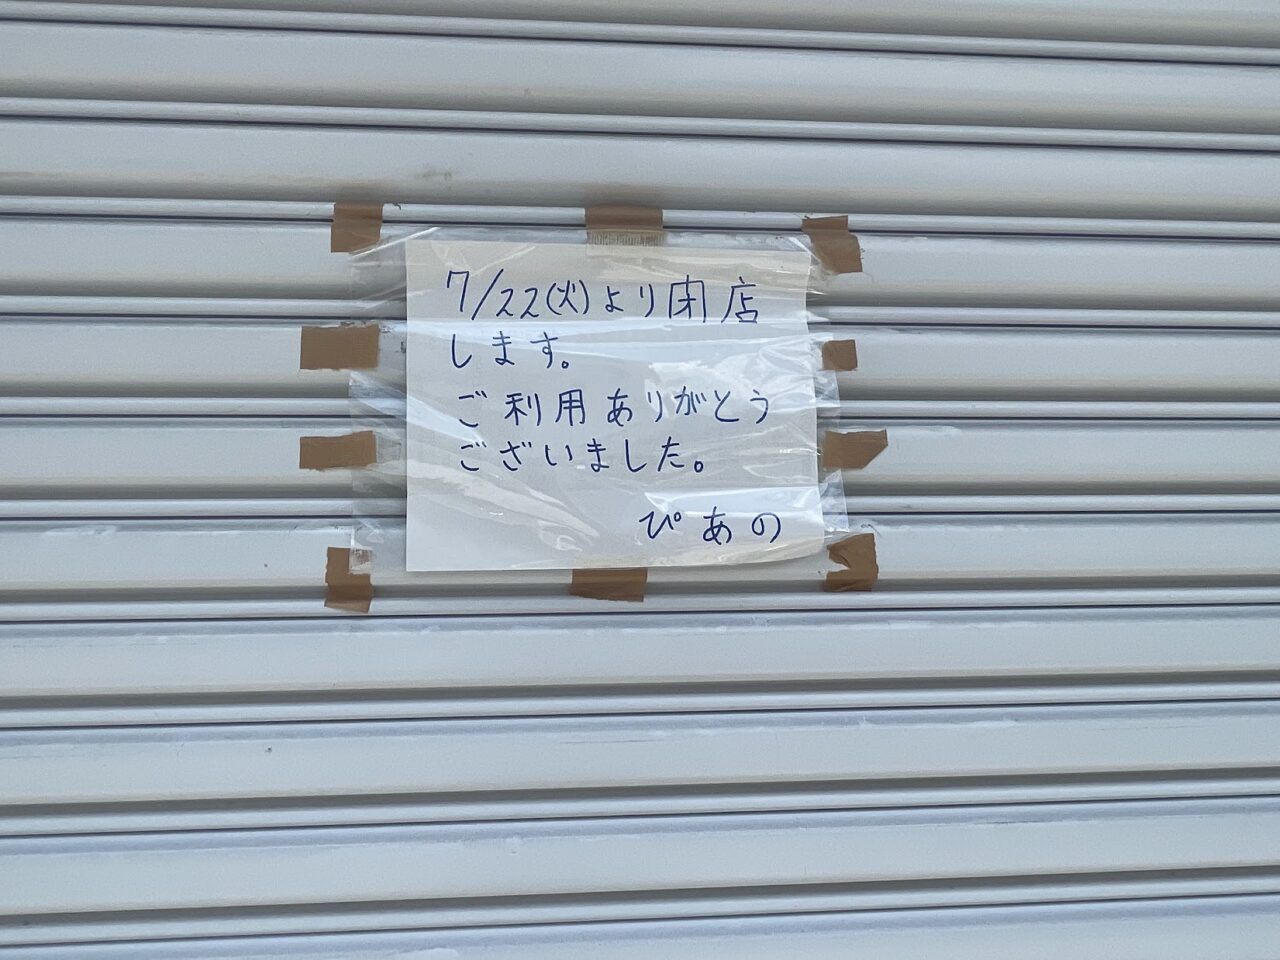 7/22(火)より閉店
します。
ご利用ありがとう
ございました。
ぴあの